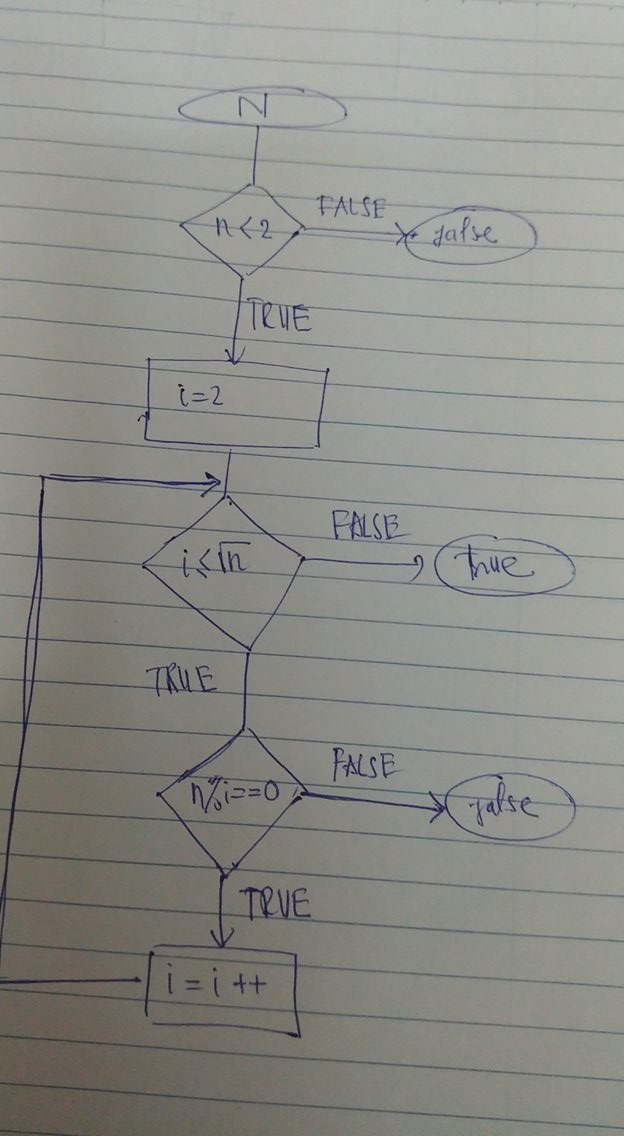 N
n<2
FALSE
false
TRUE
i=2
i≤√n
FALSE
true
TRUE
n%i==0
FALSE
false
TRUE
i = i ++